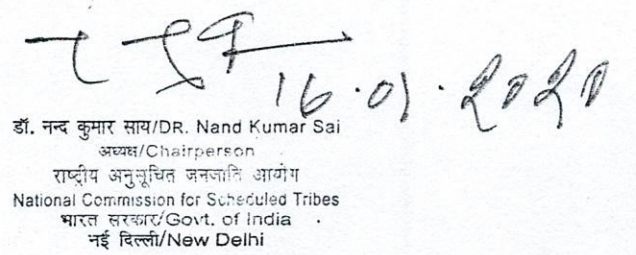 16.01.2020
डॉ. नन्द कुमार साय/DR. Nand Kumar Sai
अध्यक्ष/Chairperson
राष्ट्रीय अनुसूचित जनजाति आयोग
National Commission for Scheduled Tribes
भारत सरकार/Govt. of India
नई दिल्ली/New Delhi